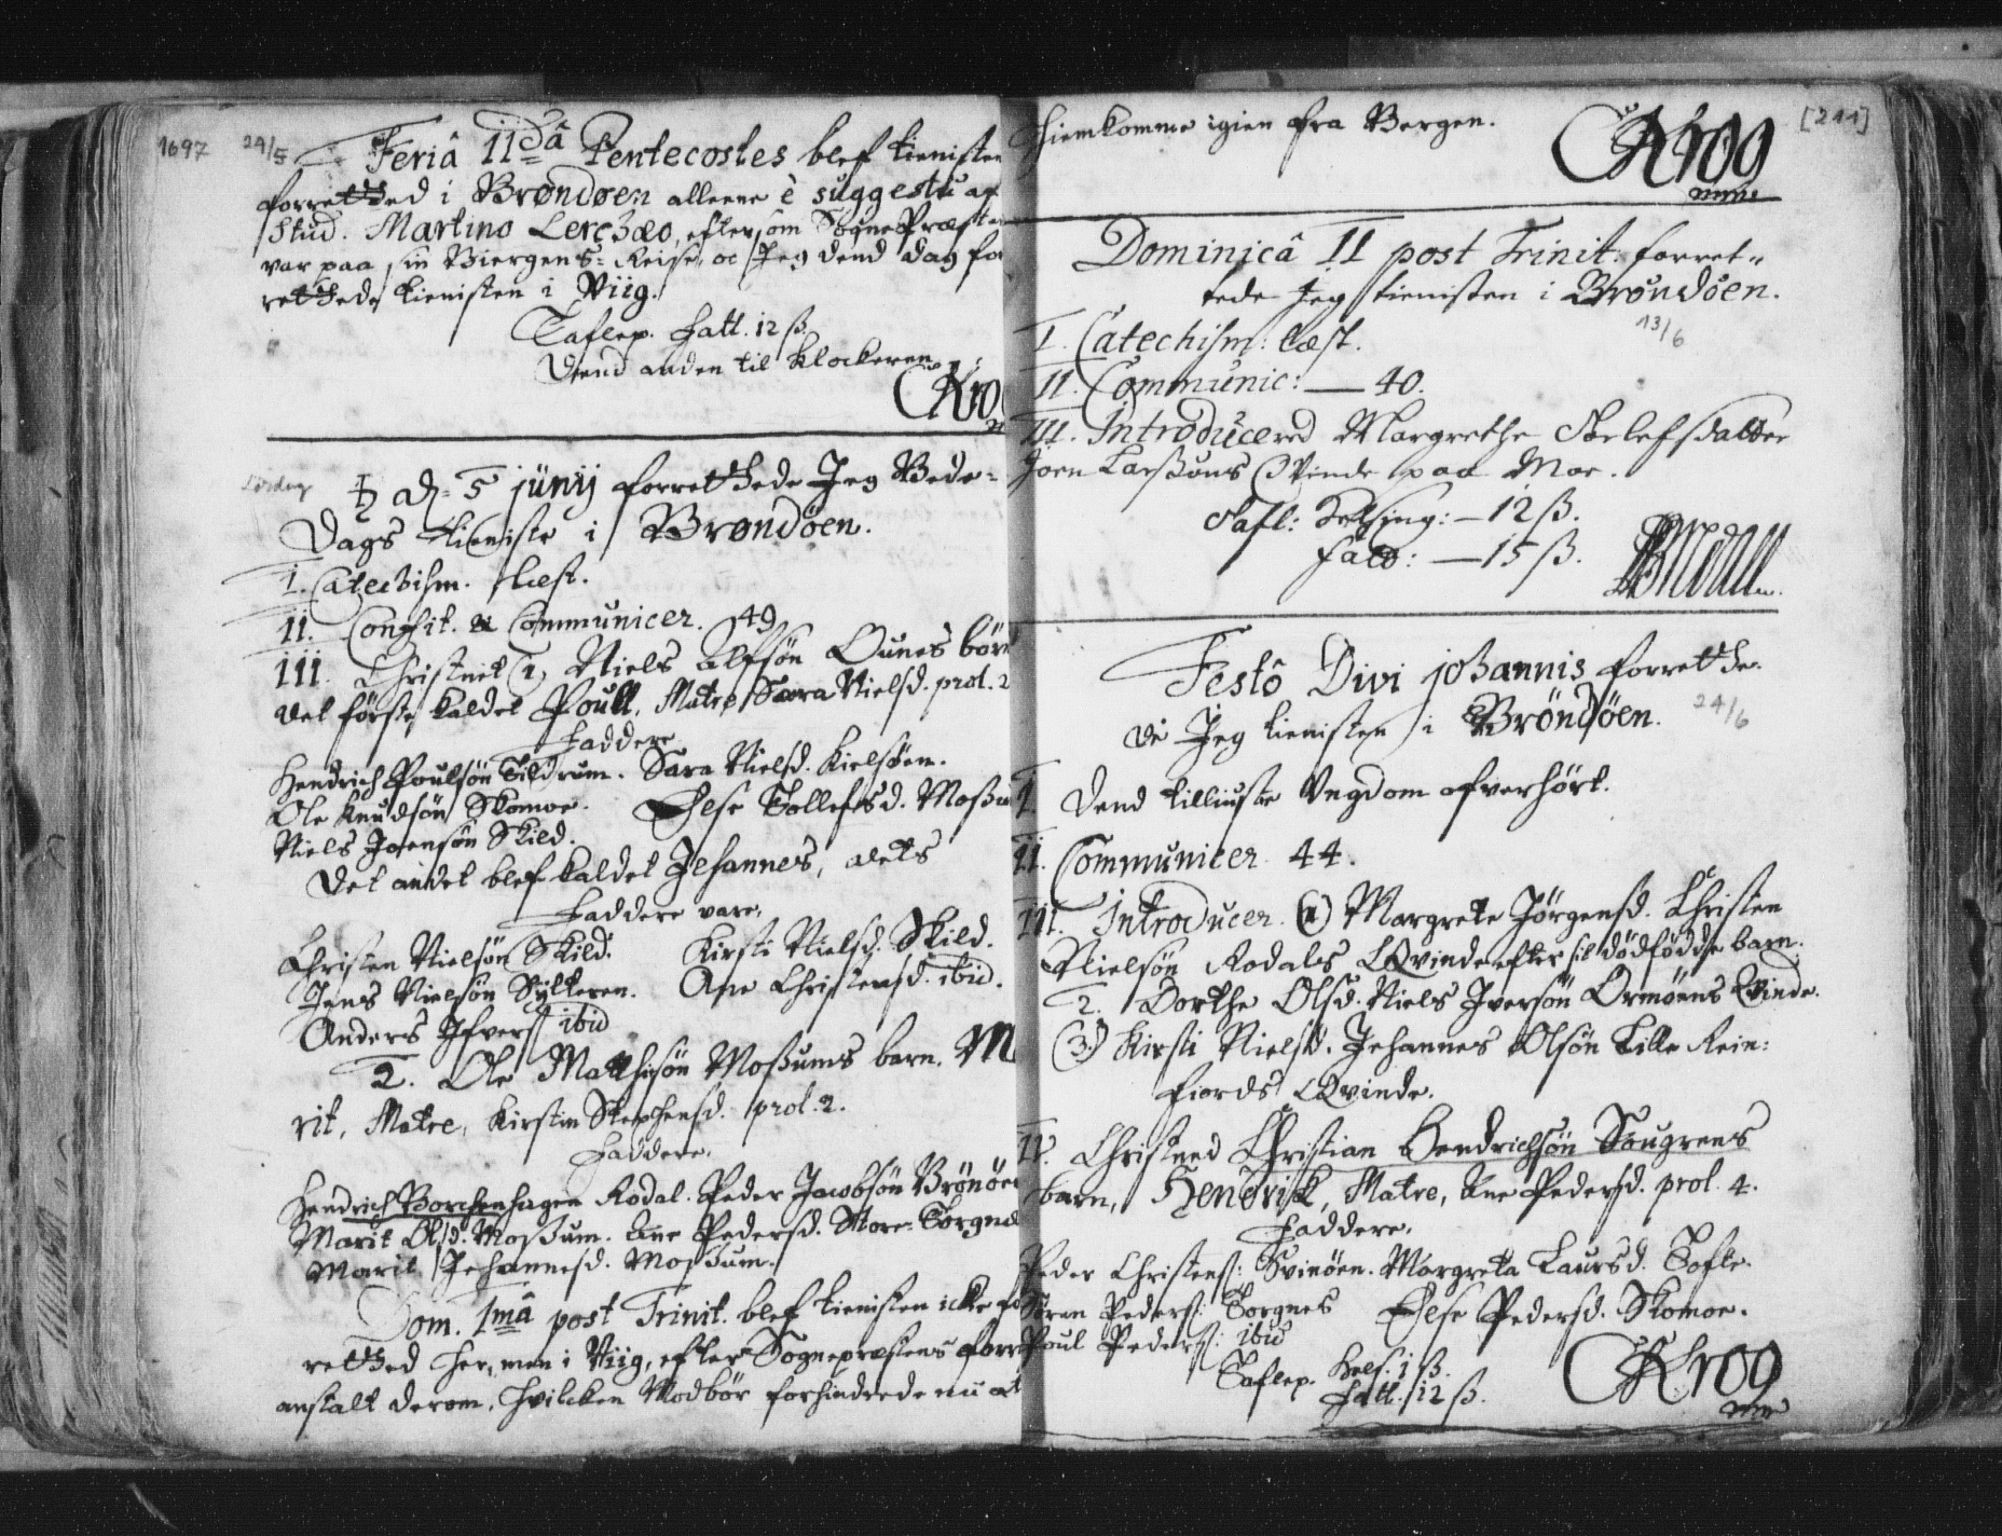 1697 24/5
Feriâ IIdâ Pentecostes blef tienisten
forretthed i Brøndøen alleene è suggestu af
Stud. Martino Lerchæo, eftersom SognePræsten
var paa sin Biergens-Reise, oc Jeg dend dag for
retthede tienisten i Viig.
Taflep. fatt. 12 ß.
Dend anden til Klockeren
Krog
Lørdag ♄ d. 5 junij forretthede Jeg Bede-
Dags tieniste i Brøndöen.
I. Catechism. læst.
II. Confit. & Communicer. 49
III. Christnet 1. Niels Alfsön Ounes börn
det förste kaldet Poull, Matre Sara Nielsd. prol. 2
Faddere
Hendrich Poulsön Tildrum. Sara Nielsd. Kielsöen.
Ole Knudsön Skomoe. Else Tollefsd. Moßum
Niels Joensön Skild.
Det andet blef kaldet Jehannes, dets
Faddere vare,
Christen Nielsön Skild. Kirsti Nielsd. Skild.
Jens Nielsön Sylteren. Ane Christensd. ibid.
Anders Ifvers. ibid
2. Ole Matthisön Moßums barn. Ma
rit, Matre, Kirstin Stephensd. prol. 2.
Faddere.
Hendrich Borchenhagen Rodal. Peder Jacobsön Brönöen
Marit Olsd. Moßum. Ane Pedersd. Store-Torgnes
Marit Jehannesd. Moßum.
Dom. 1mâ post Trinit. blef tienisten icke for
retthed her, men i Viig, efter Sognepræstens forrige
anstalt derom, hvilcken Modbör forhindrede nu at
hiemkomme igien fra Bergen.
[211]
Krog
mp
Dominicâ II post Trinit. forret-
tede Jeg tienisten i Brøndöen.
13/6
I. Catechism: læst.
II. Communic: — 40.
III. Introducered Margrethe Torlefsdatter
Joen Larsßöns Qvinde paa Moe.
Tafl: Helsing: — 12 ß.
Fatt: — 15 ß.
Festô Divi johannis forretthe-
de Jeg tienisten i Bröndöen. 24/6
I. Dend tilliuste Ungdom ofverhört.
II. Communicer. 44.
III. Introducer. (1) Margrete Jörgensd. Christen
Nielsön Rodals Qvinde efter sit dödfödde barn.
2. Dorthe Olsd. Niels Iversön Ormöens Qvinde.
(3) Kirsti Nielsd. Jehannes Olsön Lille Rein-
fiords Qvinde.
IV. Christned Christian Hendrichsön Sougrens
barn, Hendrick, Matre, Ane Pedersd. prol. 4.
Faddere,
Peder Christens: Svinöen. Margreta Laursd. Tofte.
Sören Peders: Torgnes Else Pedersd. Skomoe.
Poul Peders: ibid
Taflep. Hels. 1 ß.
Fatt. 12 ß.
Krog
mp